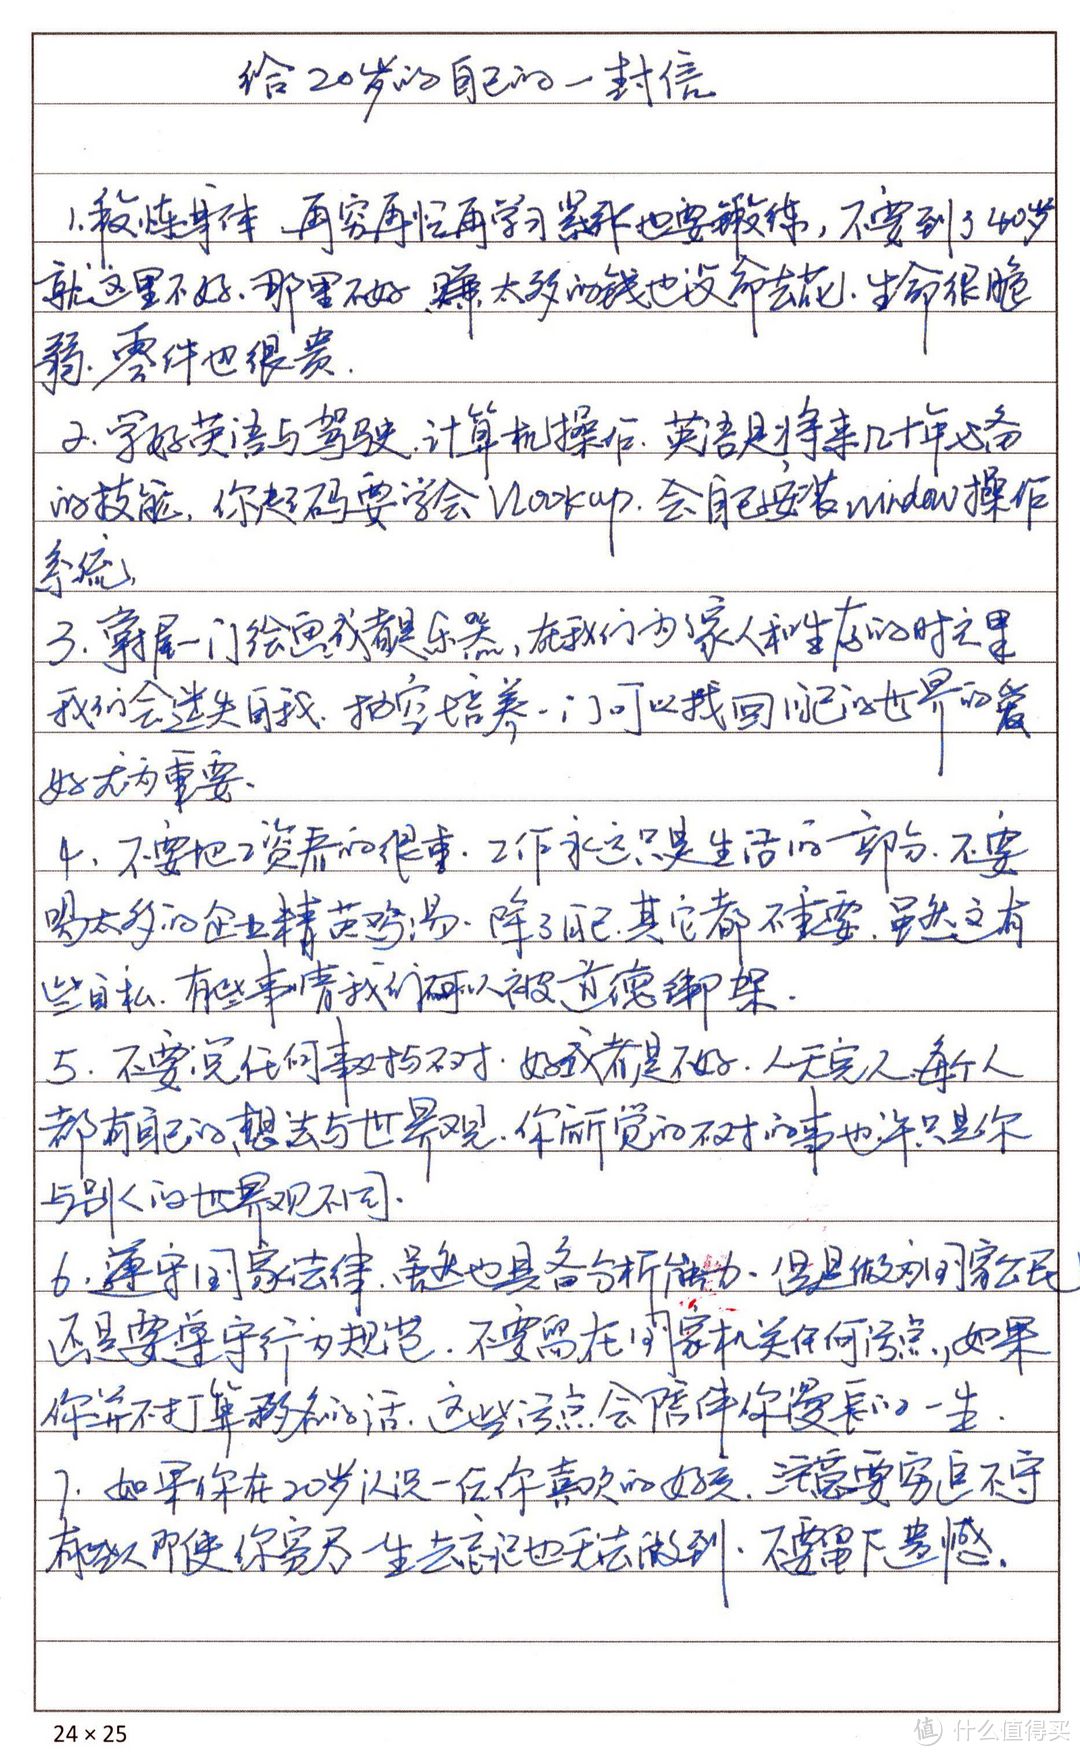 给20岁的自己的一封信
1.锻炼身体 再穷再忙再学习紧张也要锻练，不要到了40岁
就这里不好.那里不好 赚太多的钱也没命去花.生命很脆
弱.零件也很贵.
2.学好英语与驾驶.计算机操作.英语是将来几十年必备
的技能,你起码要学会Vlookup.会自己安装window操作
系统,
3.掌握一门绘画或者是乐器,在我们为了家人和生存的时之里
我们会迷失自我.抽空培养一门可以找回自己的世界的爱
好尤为重要.
4.不要把工资看的很重.工作永远只是生活的一部分.不要
喝太多的企业精英鸡汤.除了自己.其它都不重要.虽然这有
些自私.有些事情我们可以被道德绑架.
5.不要说任何事对与不对.好或者是不好.人无完人.每个人
都有自己的想法与世界观.你所觉的不对的事也许只是你
与别人的世界观不同.
6.遵守国家法律.虽然也具备分析能力.但是做为国家公民
还是要遵守行为规范.不要留在国家机关任何污点,如果
你并不打算移民的话.这些污点会陪伴你漫长的一生.
7.如果你在20岁认识一位你喜欢的女孩.注意要穷追不守
有些人即使你穷尽一生去忘记也无法做到.不要留下遗憾.
24×25
值 什么值得买